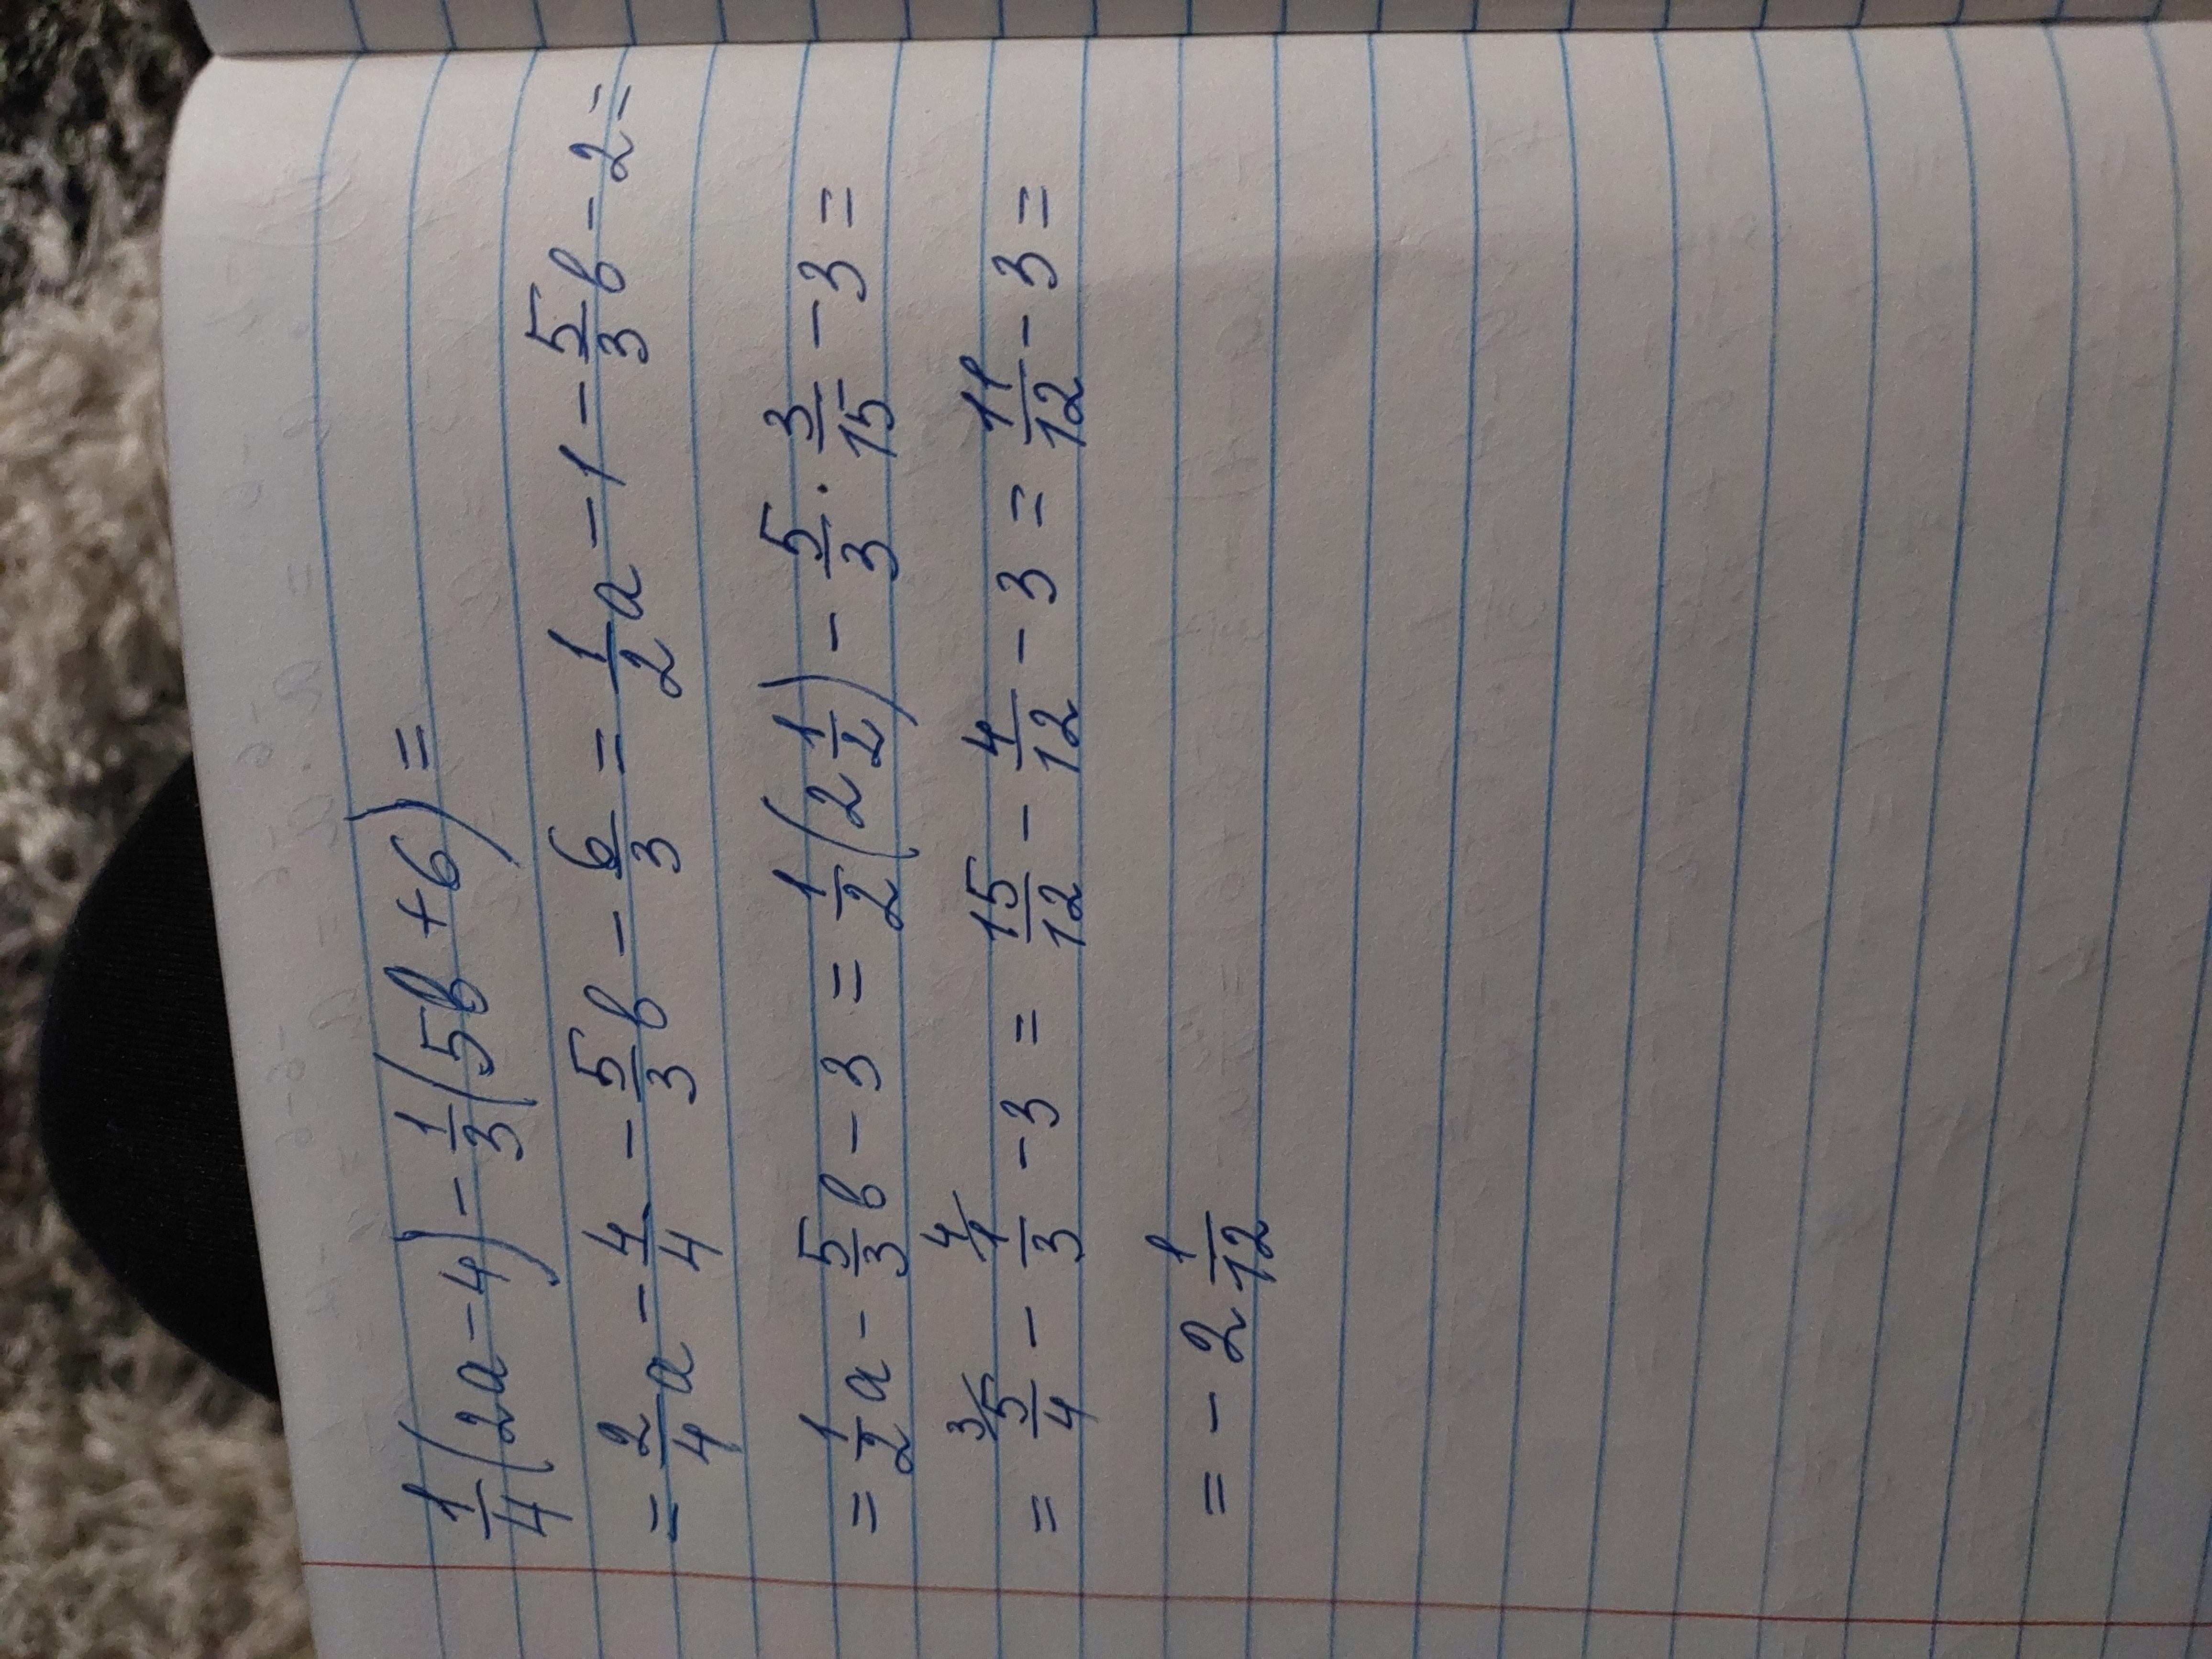 1/4(2a-4)-1/3(5b+6)=
=2/4a-4/4-5/3b-6/3=1/2a-1-5/3b-2=
=1/2a-5/3b-3=1/2(2 1/2)-5/3·3/15-3=
=3/5/4-4/1/3-3=15/12-4/12-3=11/12-3=
=-2 1/12